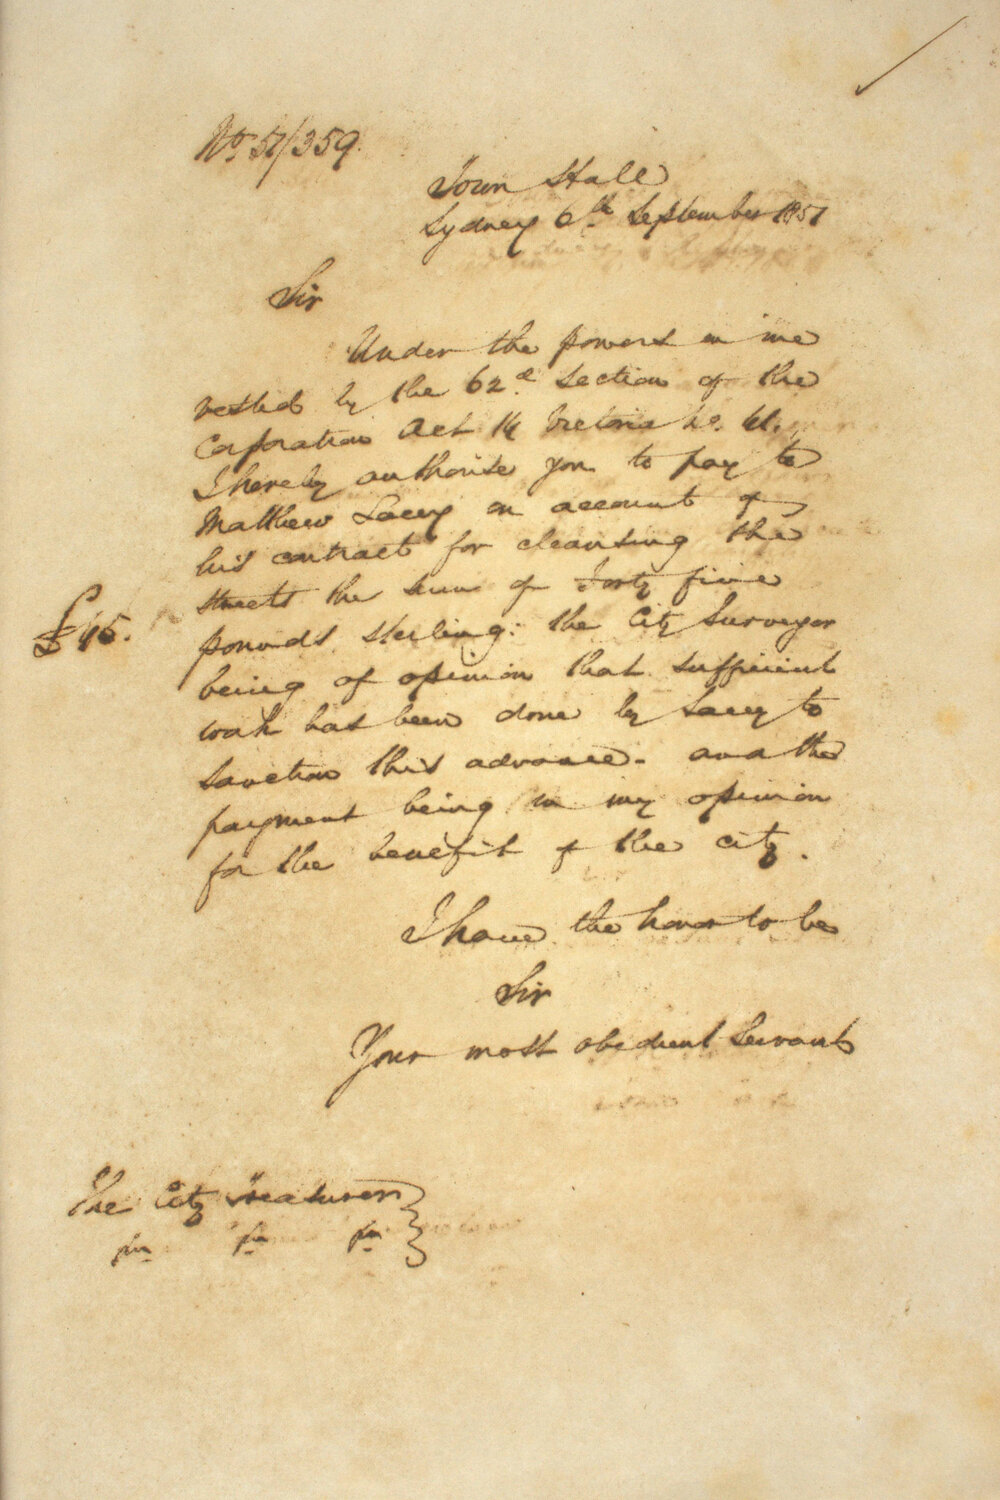 No. 51/359.
Town Hall
Sydney 6th September 1851
Sir
Under the powers in me
vested by the 62d section of the
Corporation Act 14 Victoria No. 41.
I hereby authorise you to pay to
Matthew Lacey on account of
his contract for cleansing the
streets the sum of Forty five
£45.
pounds sterling: the City Surveyor
being of opinion that sufficient
work has been done by Lacey to
sanction this advance. and the
payment being in my opinion
for the benefit of the city.
I have the honor to be
Sir
Your most obedient Servant
The City Treasurer